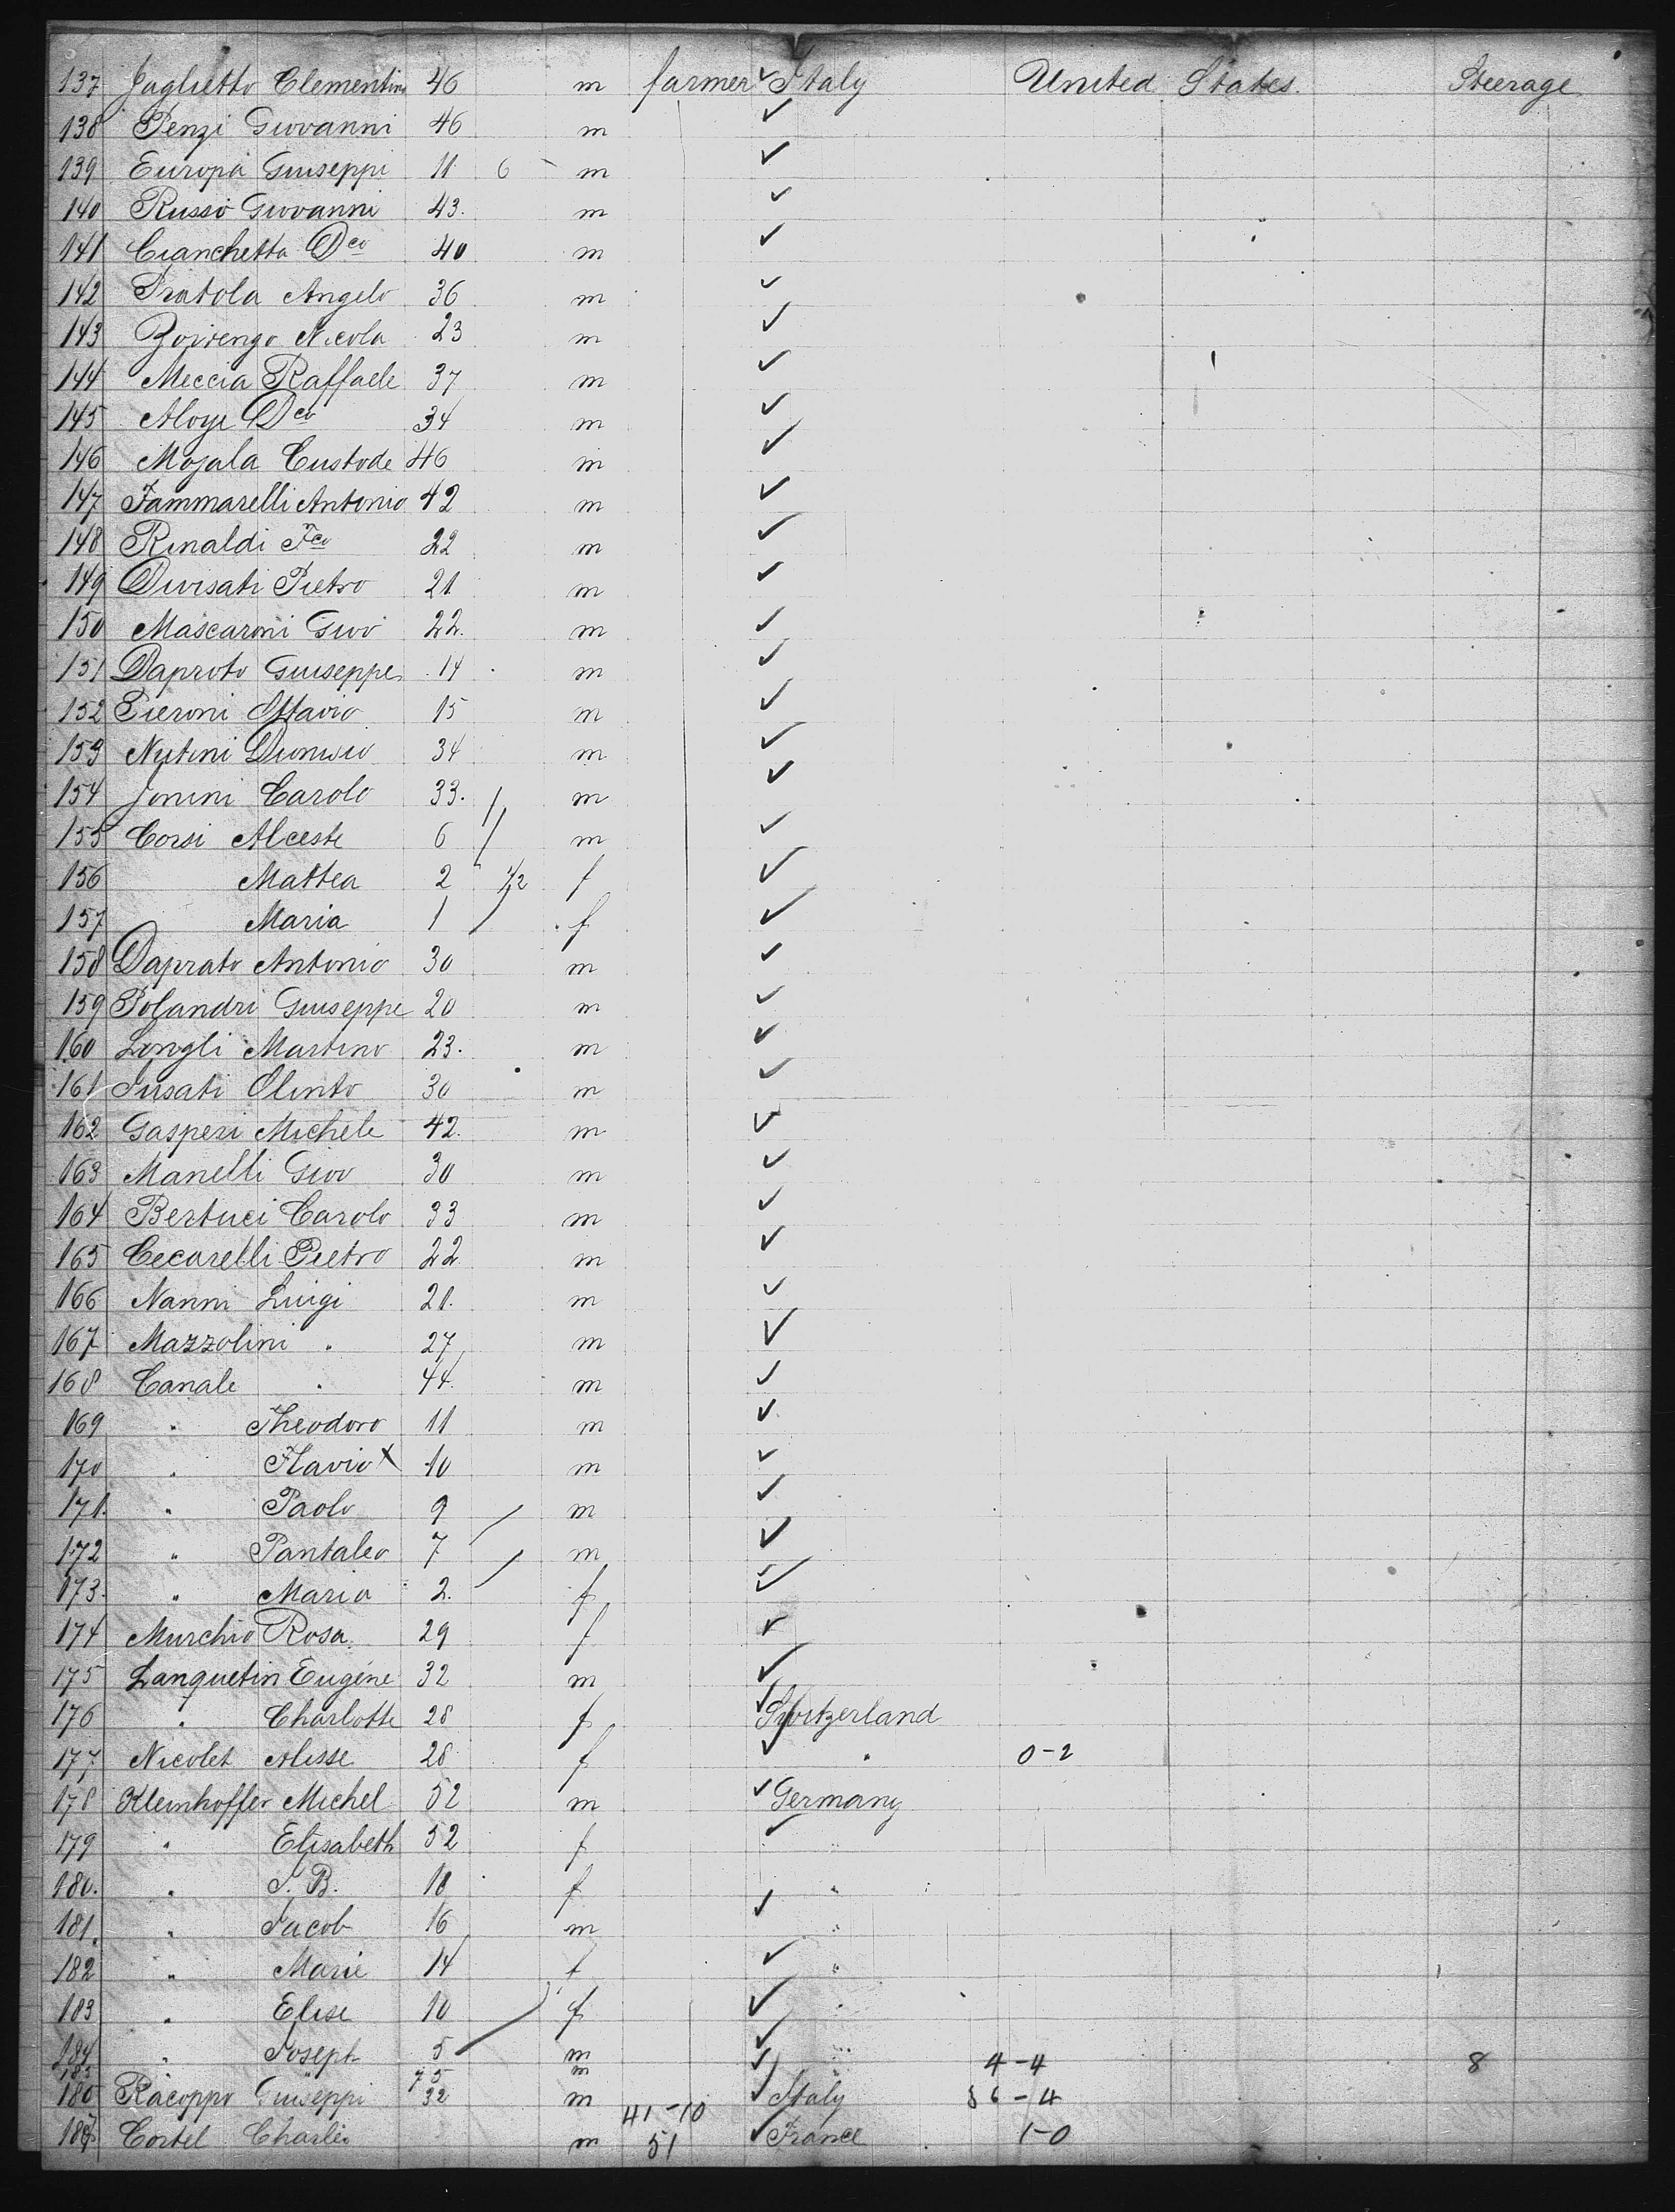 137 Juglietto Clementino 46 m farmer Italy United States. Steerage
138 Penzi Giovanni 46 m
139 Europa Giuseppi 11 6 m
140 Russo Giovanni 43. m
141 Cianchetta Dco 40 m
142 Pratola Angelo 36 m
143 Nicola 23 m
144 Meccia Raffaele 37 m
145 Aloyi Dco 34 m
146 Mojala Custode 46 m
147 Fammarelli Antonio 42 m
148 Rinaldi Fco 22 m
149 Divisati Pietro 21 m
150 Mascaroni Giov 22. m
151 Daproto Giuseppe 14 m
152 Pieroni Ottavio 15 m
153 Nutini 34 m
154 Jonini Carolo 33. m
155 Corsi Alceste 6 m
156 Mattea 2 1/2 f
157 Maria 1 f
158 Daprato Antonio 30 m
159 Polandri Giuseppe 20 m
160 Longli Martino 23. m
161 Jusati Olinto 30 m
162 Gasperi Michele 42. m
163 Manelli Giov 30 m
164 Bertuci Carolo 33 m
165 Cecarelli Pietro 22 m
166 Nanni Luigi 21. m
167 Mazzolini " 27 m
168 Canale " 44. m
169 " Theodoro 11 m
170 " Flavio x 10 m
171. " Paolo 9 m
172 " Pantaleo 7 m
173. " Maria 2. f
174 Murchio Rosa. 29 f
175 Lanquetin Eugéne 32 m
176 " Charlotte 28 f Switzerland
177 Nicolet Alisse 28 f " 0-2
178 Kleinhoffer Michel 52 m Germany
179 " Elisabeth 52 f
180. " J. B. 18 f "
181. " Jacob 16 m "
182 " Marie 14 f "
183 " Elise 10 f "
184 " Joseph 5 m " 4-4 8
185 " 75 m
186 Racoppo Giuseppi 32 m 41-10 Italy 86-4
187 Cortel Charles m 51 France 1-0